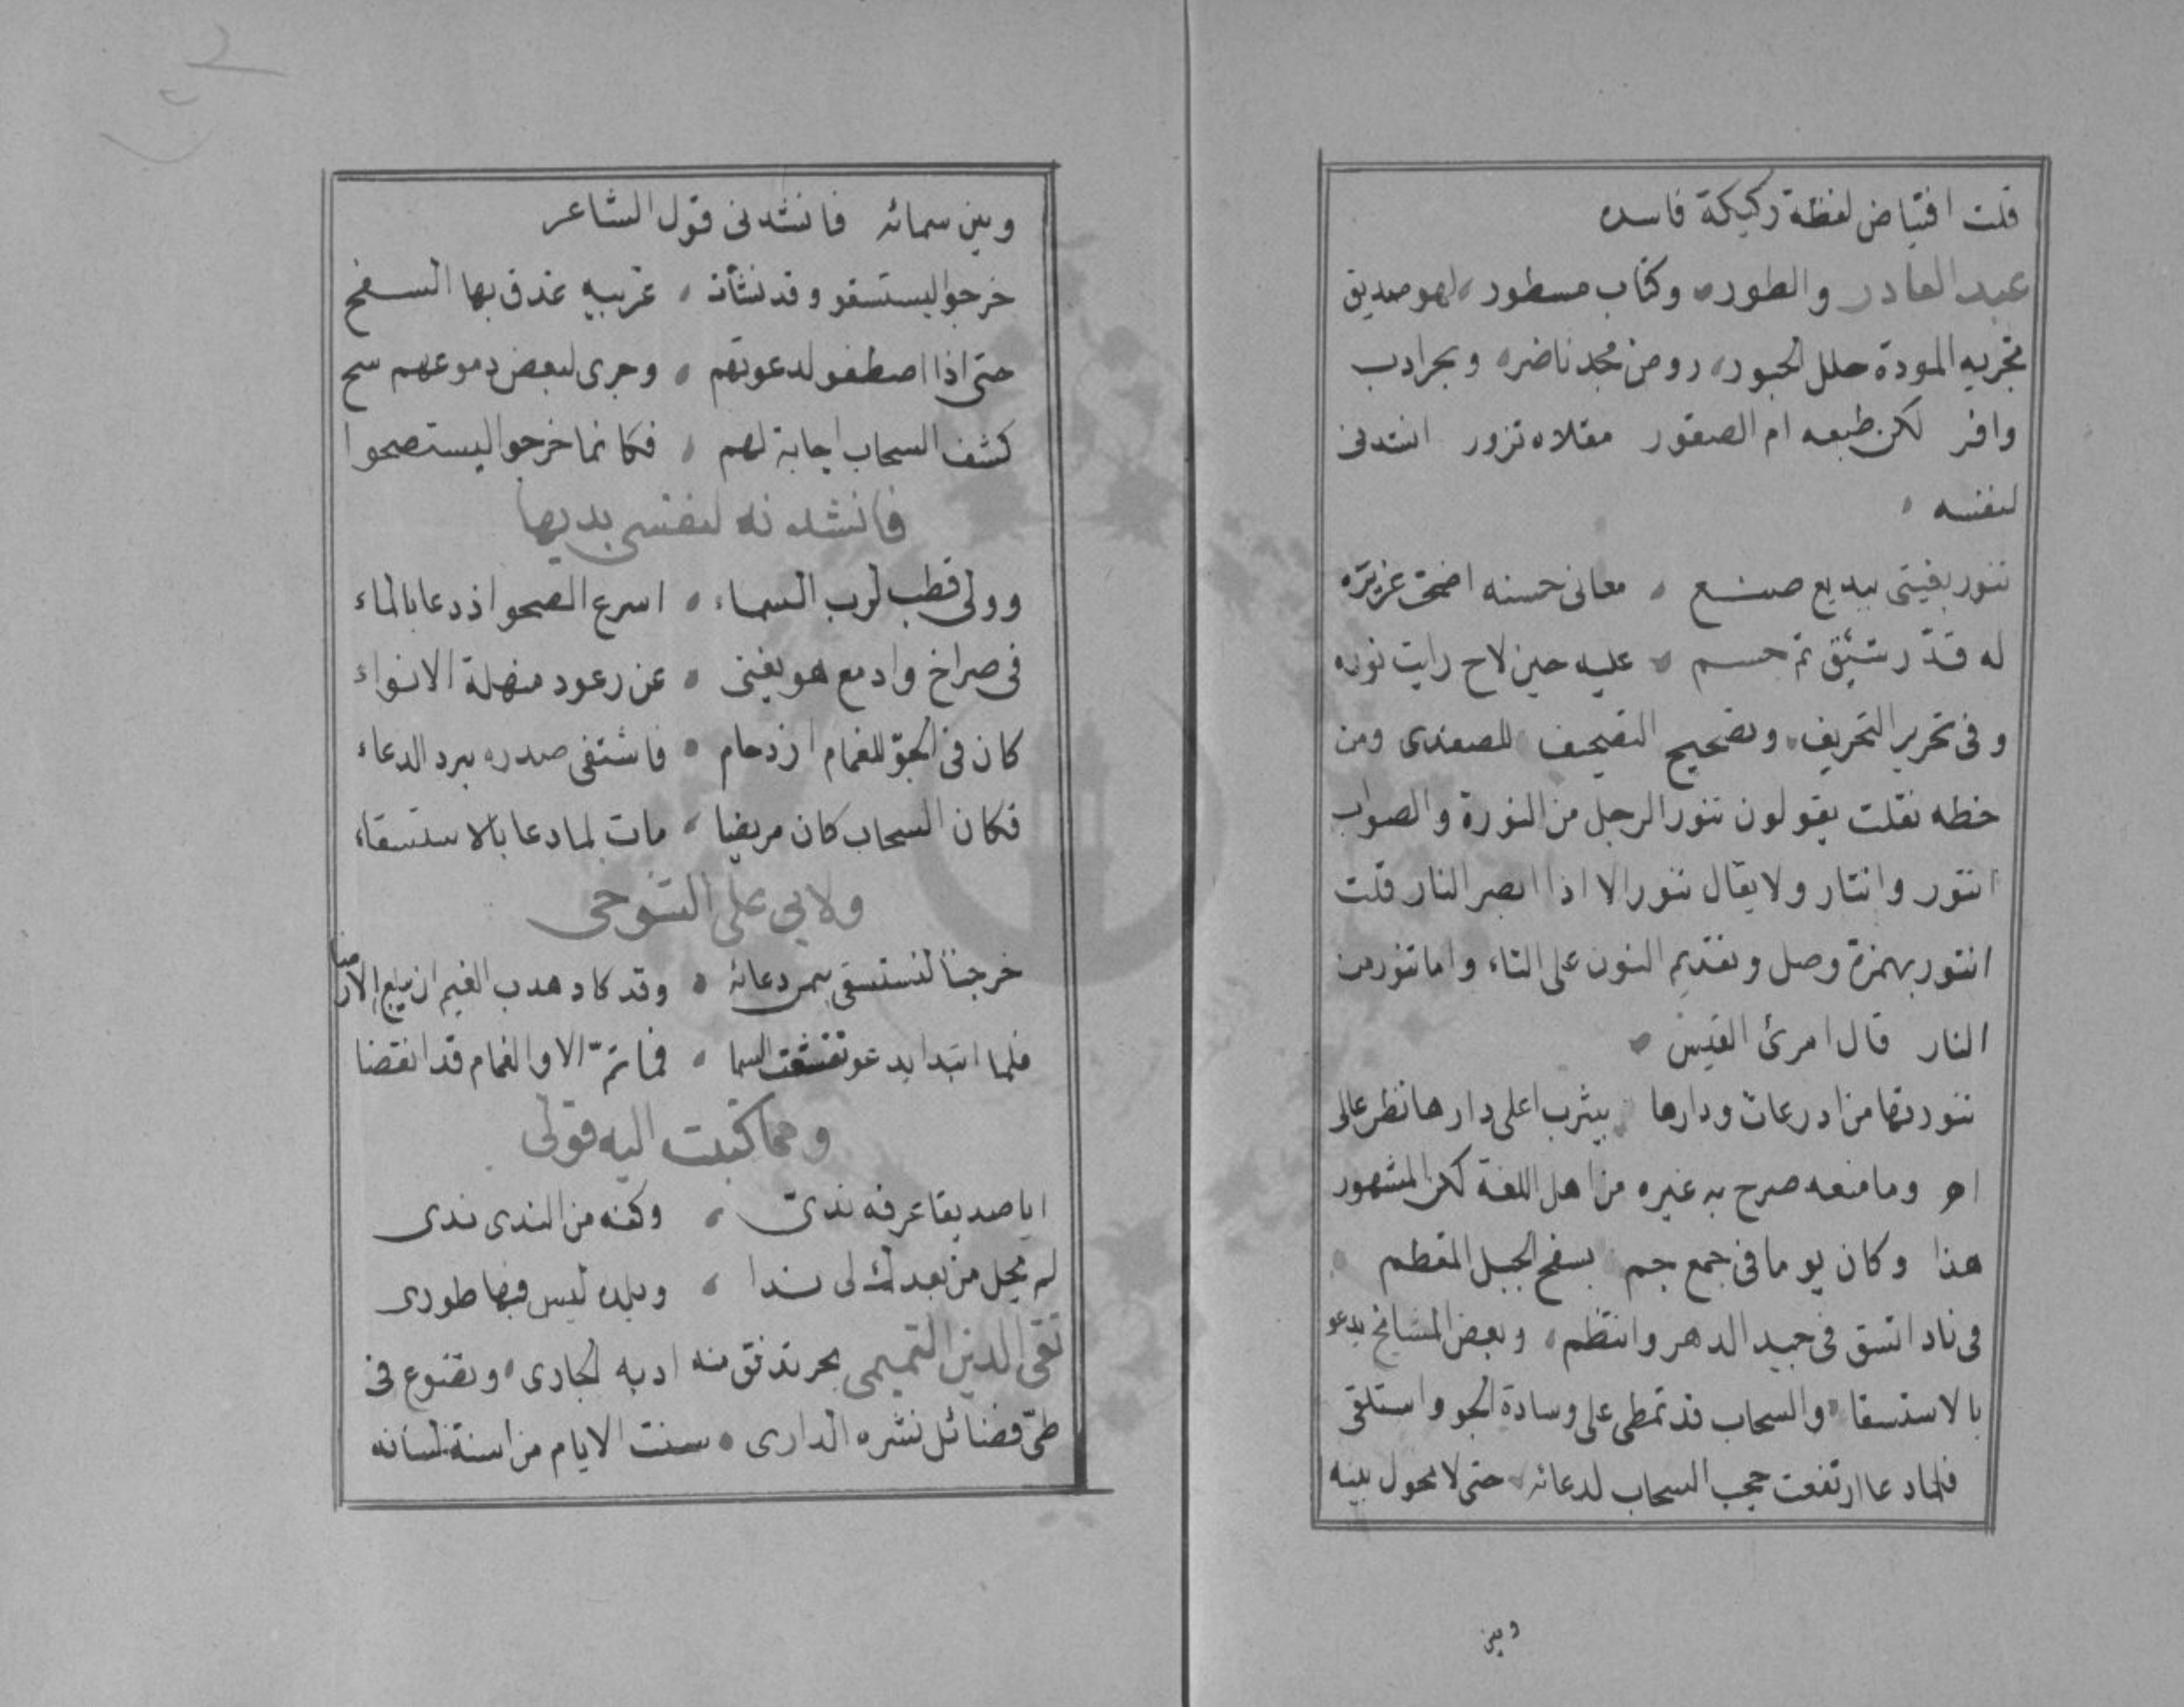 قلت افتياض لفظة ركيكة فاسده
عبد القادر والطور وكتاب مسطور لهو صديق
تجريه المودة حلل الحبور روض مجد ناضر وبحر ادب
وافر لكن طبعه ام الصقور مقلاه تزور انشدنى
لنفسه
تنور بغيتى ببديع صنع معانى حسنه اضحت غزيره
له قدّ رشيق تم حسم عليه حين لاح رايت نوره
وفى تحرير التحريف وتصحيح التصحيف للصفدى ومن
خطه نقلت يقولون تنور الرجل من النورة والصواب
انتور وانتار ولا يقال تنور الا اذا ابصر النار قلت
انتور بهمزة وصل وتقديم النون على التاء واما تنور من
النار قال امرئ القيس
تنورتها من ادرعات ودارها بيثرب اعلى دارها نظر عالى
اه وما منعه صرح به غيره من اهل اللغة لكن المشهور
هذا وكان يوما فى جمع جم بسفح الجبل المقطم
فى ناد اتسق فى جيد الدهر وانتظم وبعض المشايخ يدعو
بالاستسقا والسحاب قد تمطى على وسادة الجو واستلقى
فلما دعا ارتفعت حجب السحاب لدعائه حتى لا تحول بينه
وبين
وبين سمائه فانشدنى قول الشاعر
خرجوا ليستسقو وقد نشأت غربيه غدق بها السفح
حتى اذا اصطفو لدعوتهم وجرى لبعض دموعهم سح
كشف السحاب اجابة لهم فكانما خرجوا ليستصحوا
فانشدته لنفسى بديها
وولى قطب لرب السماء اسرع الصحو اذ دعا بالماء
فى صراخ وادمع هو يغنى عن رعود منهلة الانواء
كان فى الجوّ للغمام ازدحام فاشتفى صدره ببرد الدعاء
فكان السحاب كان مريضا مات لما دعا بالاستسقاء
ولابى على التنوحى
خرجنا لنستسقى بيمن دعائه وقد كاد هدب الغيم ان يبلع الارضا
فلما ابتدا يدعو تقشعت السما فما تمّ الا والغمام قد انقضا
ومما كتبت اليه قولى
ايا صديقا عرفه ندىّ وكفه من الندى ندى
لم يحل من بعدك لى ندا وبلده ليس فيها طورى
تقى الدين التميمى بحر تدفق منه ادبه الجارى وتضوع فى
طىّ فضائل نشره الدارى سنت الايام من اسنة لسانه